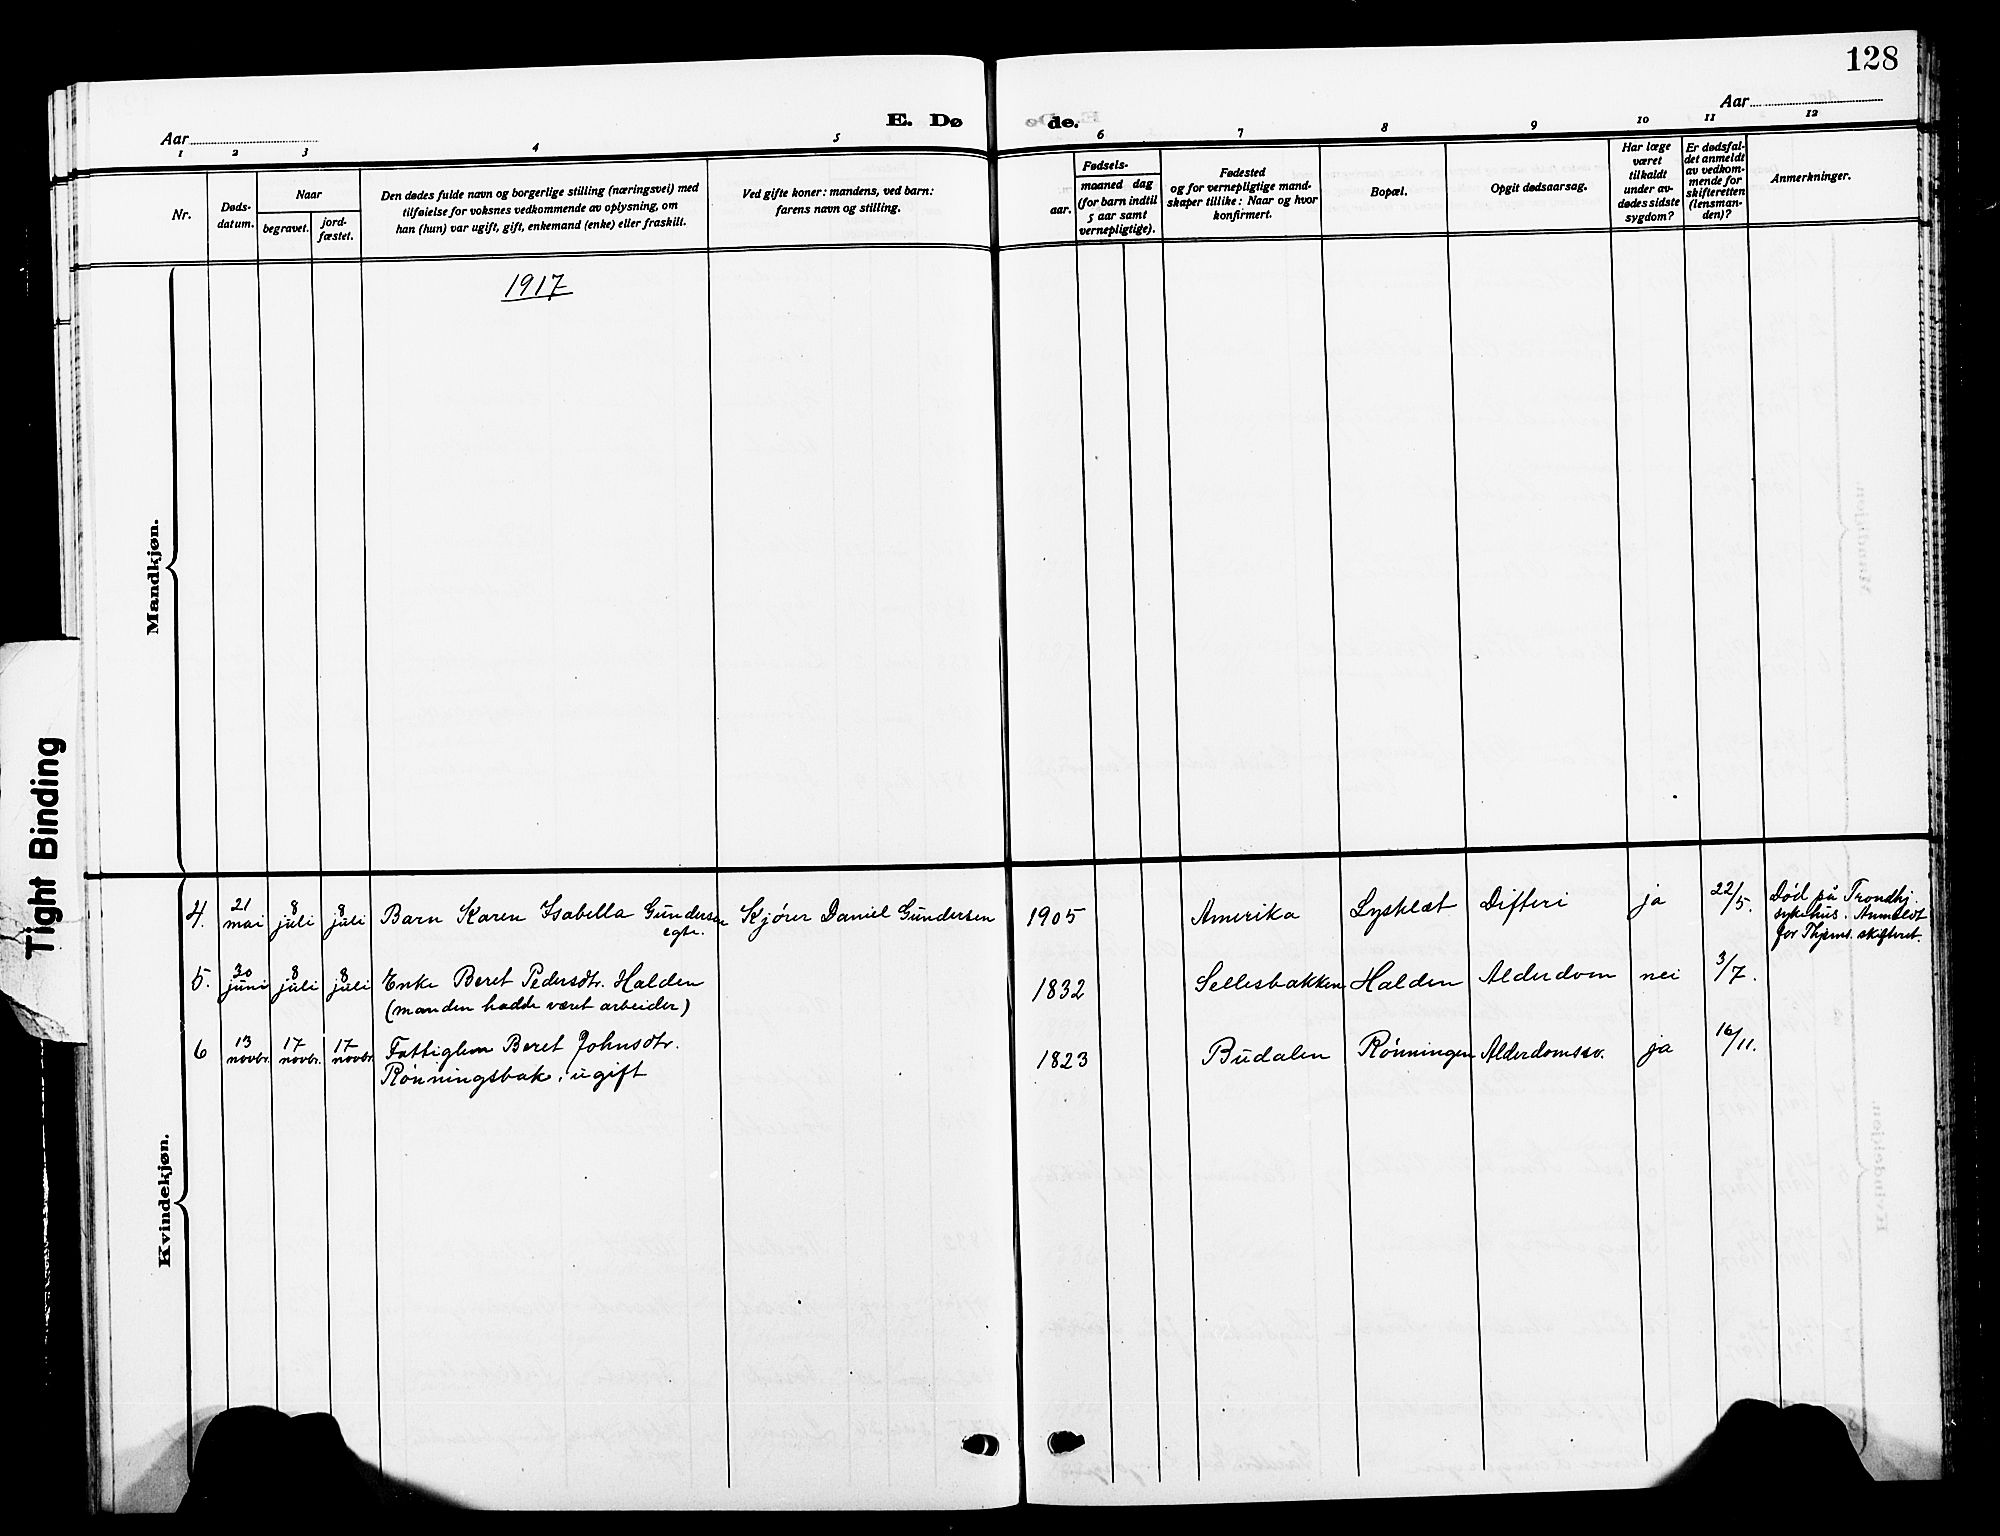 128
E. Døde.
Aar
Aar
1 2 3 4 5 6 7 8 9 10 11 12
Nr.
Døds-
datum.
Naar
begravet.
jord-
fæstet.
Den dødes fulde navn og borgerlige stilling (næringsvei) med
tilføielse for voksnes vedkommende av oplysning, om
han (hun) var ugift, gift, enkemand (enke) eller fraskilt.
Ved gifte koner: mandens, ved barn:
farens navn og stilling.
Fødsels-
aar.
maaned dag
(for barn indtil
5 aar samt
vernepligtige).
Fødested
og for vernepligtige mand-
skaper tillike: Naar og hvor
konfirmert.
Bopæl.
Opgit dødsaarsag.
Har læge
været
tilkaldt
under av-
dødes sidste
sygdom?
Er dødsfal-
det anmeldt
av vedkom-
mende for
skifteretten
(lensman-
den)?
Anmerkninger.
1917
Mandkjøn.
Tight Binding
Kvindekjøn.
4. 21 mai 8 juli 8 juli Barn Karen Isabella Gundersen Kjører Daniel Gundersen 1905 Amerika Lysklæt Difteri ja 22/5.
egte.
Død på Trondhj.
sykehus. Anmeldt
for Thjems. skifteret.
5. 30 juni 8 juli 8 juli Enke Beret Pedersdtr. Halden 1832 Sellesbakken Halden Alderdom nei 3/7.
(manden hadde været arbeider)
6 13 novbr. 17 novbr. 17 novbr. Fattiglem Beret Johnsdtr. 1823 Budalen Rønningen Alderdomssv. ja 16/11.
Rønningsbak. ugift